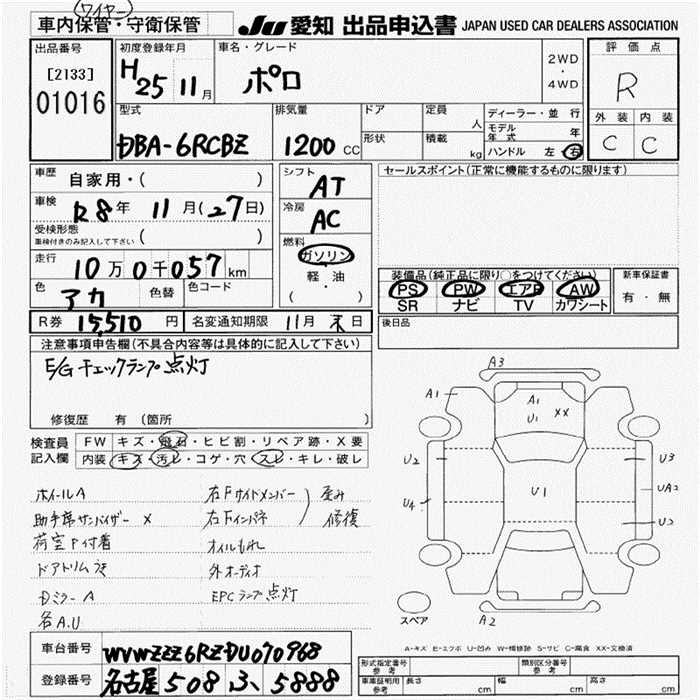 ワイヤー
車内保管・守衛保管
JU 愛知 出品申込書 JAPAN USED CAR DEALERS ASSOCIATION
出品番号
[2133]
01016
初度登録年月
H25 11月
車名・グレード
ポロ
2WD
・
4WD
評価点
R
外装 内装
C C
型式
DBA-6RCBZ
排気量
1200 CC
ドア
形状
定員
人
積載
kg
ディーラー・並行
モデル年式 年
ハンドル 左 右
車歴
自家用・( )
車検
R8年 11月(27日)
受検形態
車検付きのみ記入して下さい ( )
走行
10万0千057km
色
アカ
色替
色コード
シフト
AT
冷房
AC
燃料
ガソリン
軽・油
( ・ )
セールスポイント(正常に機能するものに限ります)
装備品(純正品に限り○をつけてください)
PS PW エアB AW
SR ナビ TV カワシート
新車保証書
有・無
R券 15,510 円
名変通知期限 11月末日
後日品
注意事項申告欄(不具合内容等は具体的に記入して下さい)
E/Gチェックランプ点灯
修復歴 有(箇所
検査員
記入欄
FW キズ・飛石・ヒビ割・リペア跡・X要
内装 キズ・汚レ・コゲ・穴・スレ・キレ・破レ
ホイールA
助手席サンバイザー ×
荷室P付着
ドアトリムうき
Dミラー A
各A.U
右Fサイドメンバー
右Fインパネ
歪み
修復
オイルもれ
外オーディオ
EPCランプ点灯
A3
A1
A1
U1
XX
U2
U3
U4
U1
UA2
U2
スペア
A2
A-キズ E-エクボ U-凹み W-補修跡 S-サビ C-腐食 XX-交換済
車台番号
WVWZZZ6RZDU070968
登録番号
名古屋 508 ふ 5888
形式指定番号
参考
類別区分番号
参考
車庫証明用
参考
長さ cm 幅 cm 高さ cm